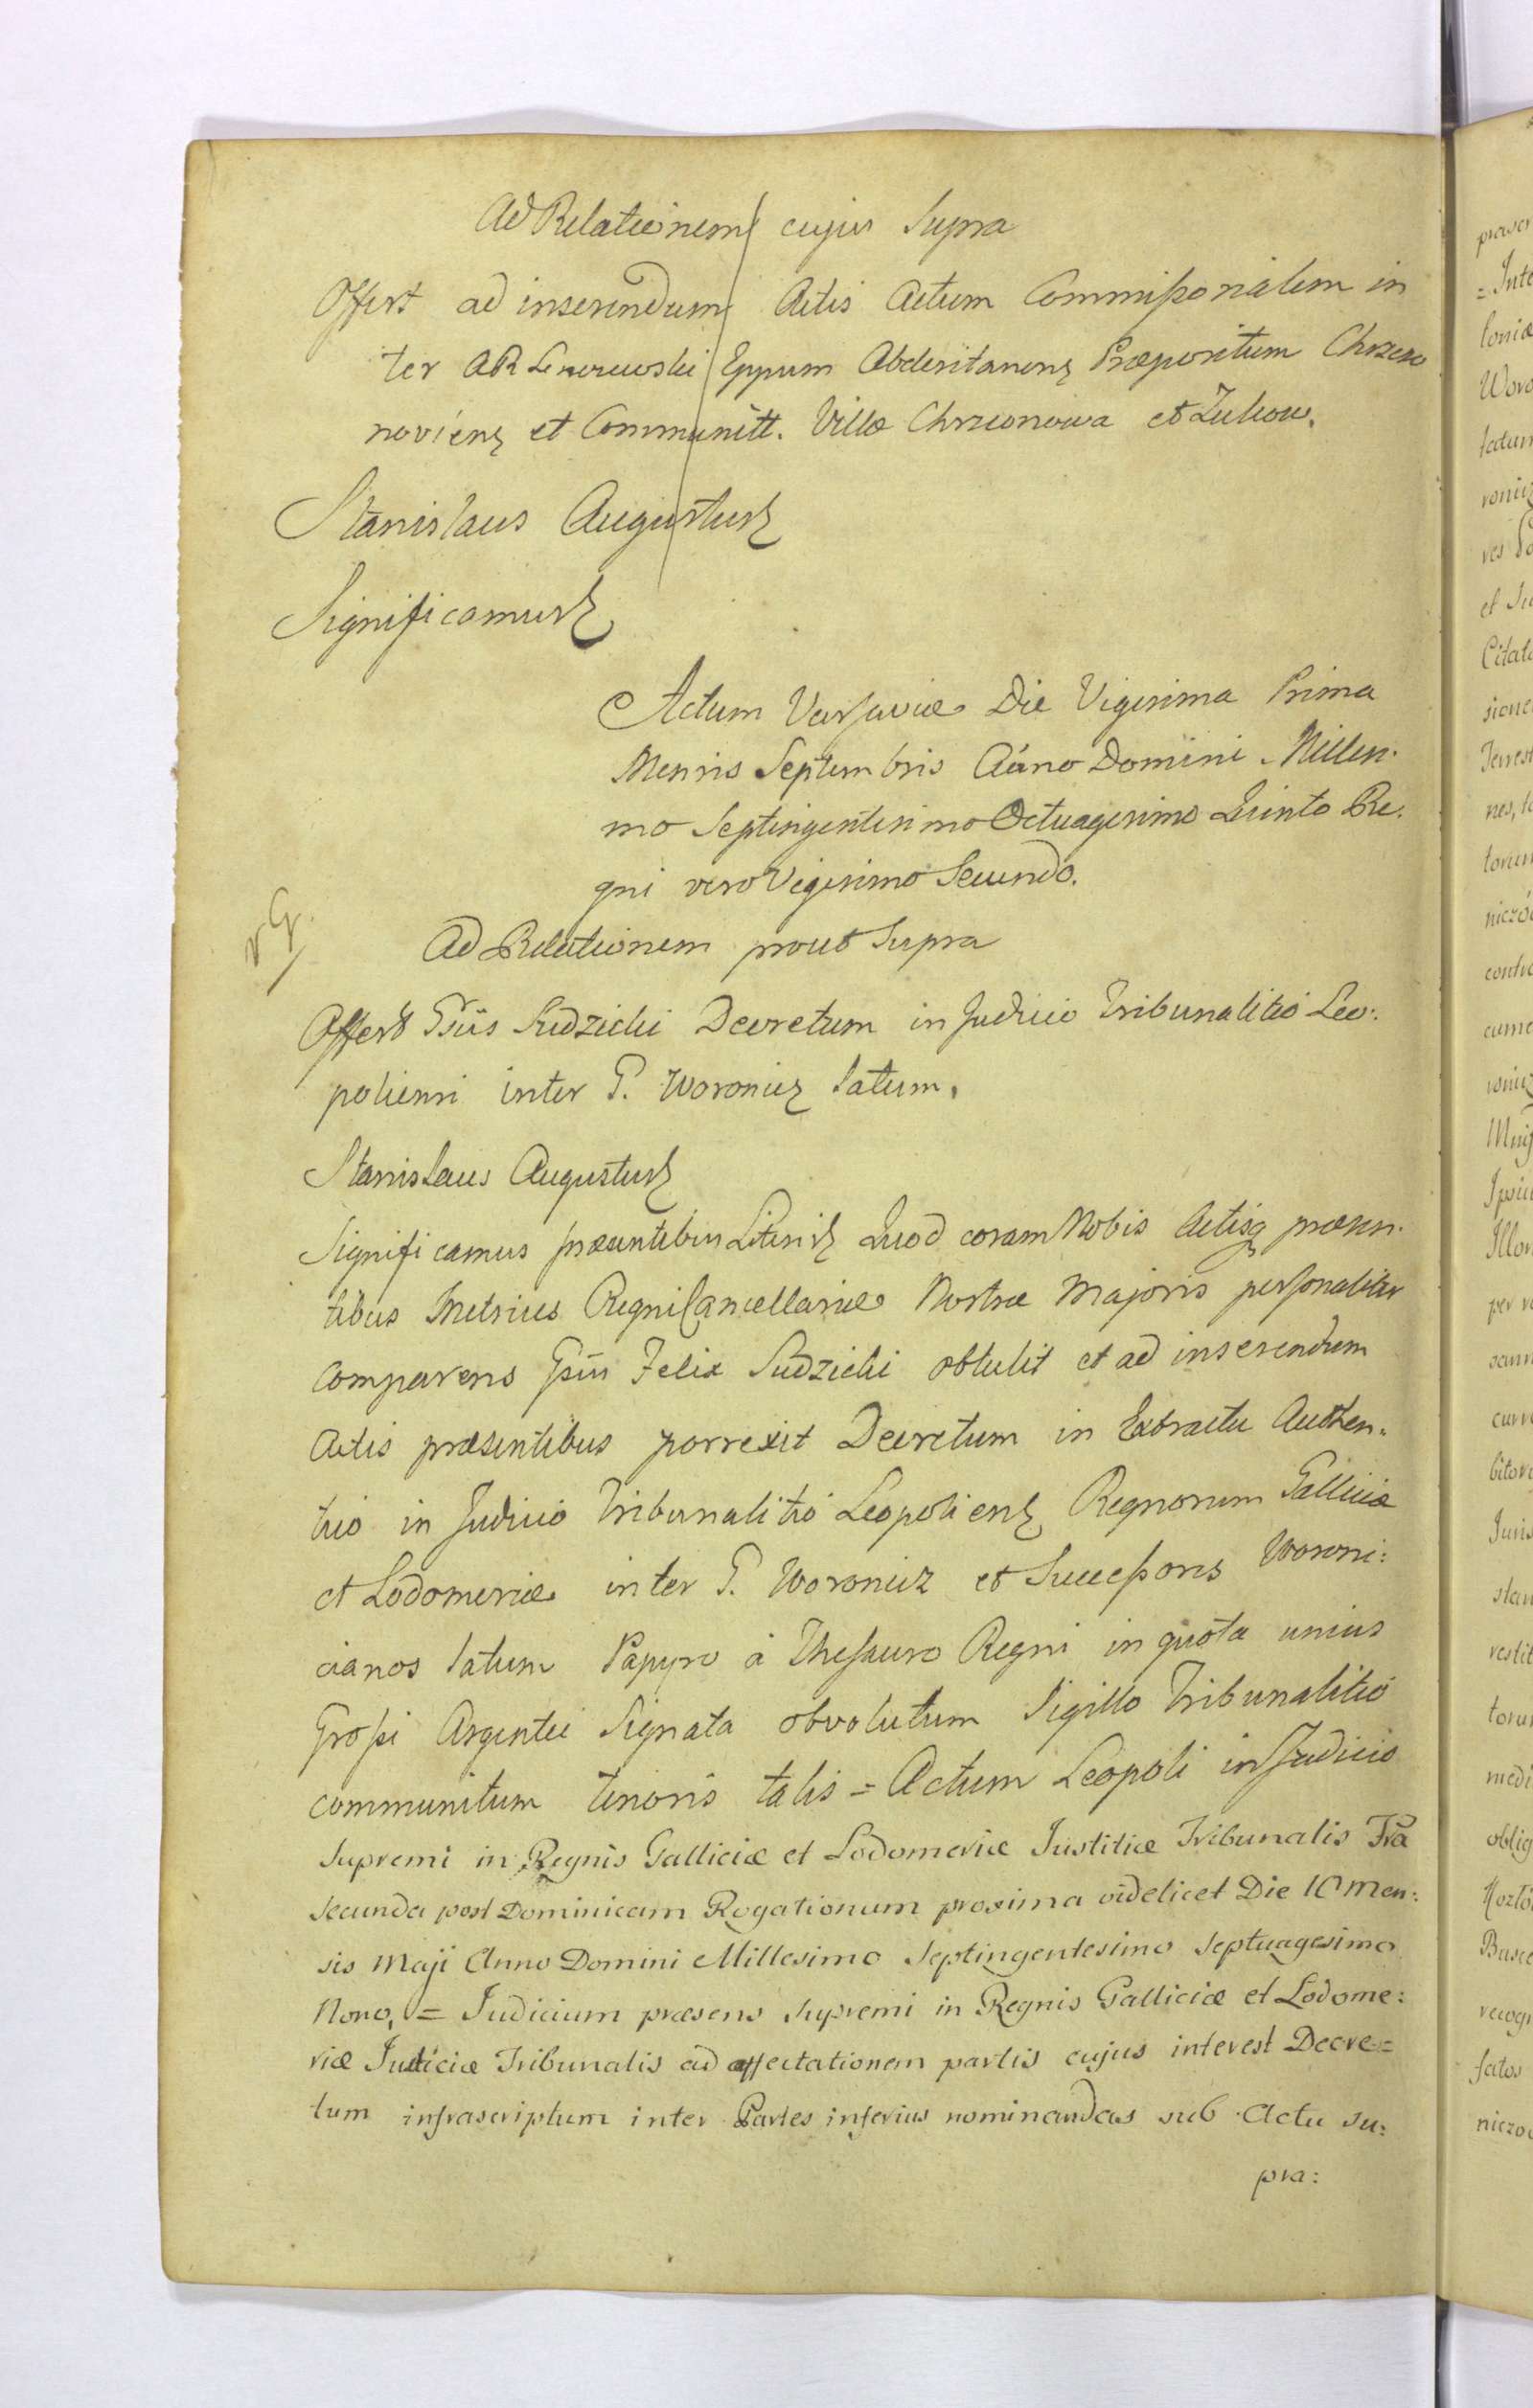 Ad Relationem cujus Supra
Offert ad inserendum Actis Actum Commissionalem in
ter AR Lenczewski Eppum Abderitanens Præpositum Chrzczo
noviens et Communitt. Villæ Chrzczonowa et Zukow.
Stanislaus Augustus
Significamus
Actum Varsaviæ Die Vigesima Prima
Mensis Septembris Anno Domini Millesi
mo Septingentesimo Octuagesimo Quinto Re.
gni vero Vigesimo Secundo.
Ad Relationem prout Supra
Offert Gsūs Sudzicki Decretum in Judicio Tribunalitio Leo:
poliensi inter G. Woronicz latum.
Stanislaus Augustus
Significamus præsentibus Literis Quod coram Nobis Actisq præsen.
tibus Metrices Regni Cancellariæ Nostræ Majoris personaliter
comparens Gsūs Felix Sudzicki obtulit et ad inserendum
Actis præsentibus porrexit Decretum in Extractu Authen.
tico in Judicio Tribunalitio Leopoliens Regnorum Galliciæ
et Lodomeriæ inter G. Woronicz et Successores Woroni:
cianos latum Papyro à Thesauro Regni in quota unius
Grossi Argentei Signata obvolutum Sigillo Tribunalitio
communitum tenoris talis = Actum Leopoli in Judicio
Supremi in Regnis Galliciæ et Lodomeriæ Justitiæ Tribunalis Fra
secunda post Dominicam Rogationum proxima videlicet Die 10 Men:
sis Maji Anno Domini Millesimo Septingentesimo Septuagesimo
Nono, = Judicium præsens Supremi in Regnis Galliciæ et Lodome:
riæ Justiciæ Tribunalis ad affectationem partis cujus interest Decre=
tum infrascriptum inter Partes inferius nominandas sub Actu su:
pra: